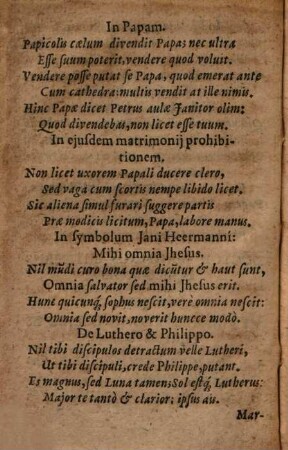 In Papam.
Papicolis cælum divendit Papa; nec ultra
Esse suum poterit, vendere quod voluit.
Vendere posse putat se Papa, quod emerat ante
Cum cathedra: multis vendit at ille nimis.
Hinc Papæ dicet Petrus aulæ Janitor olim:
Quod divendebas, non licet esse tuum.
In ejusdem matrimonij prohibi-
tionem.
Non licet uxorem Papali ducere clero,
Sed vaga cum scortis nempe libido licet.
Sic aliena simul furari suggere parti
Præ modicis licitum, Papa, labore manus.
In symbolum Jani Heermanni:
Mihi omnia Jhesus.
Nil mũdi curo bona quæ dicũtur & haut sunt,
Omnia salvator sed mihi Jhesus erit.
Hunc quicunq; sophus nescit, verè omnia nescit:
Omnia sed novit, noverit hunece modò.
De Luthero & Philippo.
Nil tibi discipulos detractum velle Lutheri,
Ut tibi discipuli, crede Philippe, putant.
Es magnus, sed Luna tamen; Sol estq; Lutherus:
Major te tantò & clarior; ipsus ais.
Mar-